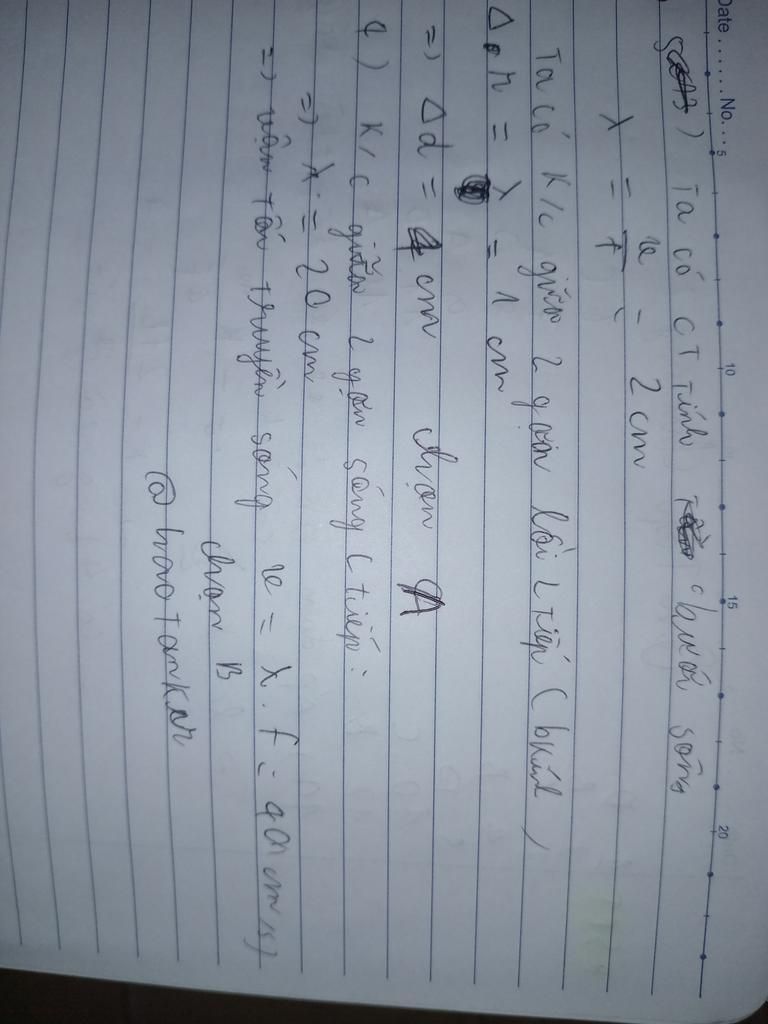 Date ....... No. ...
5 10 15 20
) Ta có CT tính bước sóng
λ = v/f = 2 cm
Ta có K/c giữa 2 gợn lồi 2 tiếp (bkính)
Δ r = λ = 1 cm
=> Δd = 4 cm chọn A
4) K/c giữa 2 gợn sóng (tiếp:
=> λ = 20 cm
=> vận tốc truyền sóng v = λ . f = 40 cm/s)
chọn B